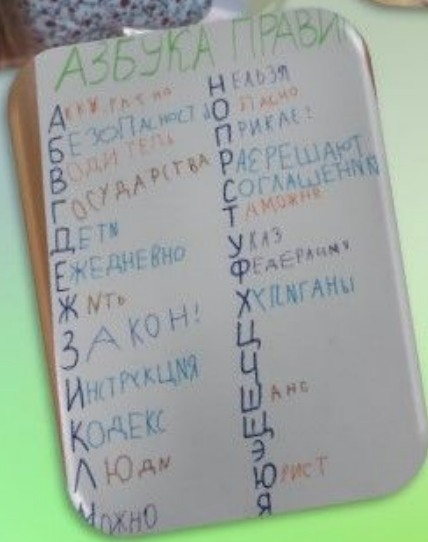 АЗБУКА ПРАВИ
Аккуратно
БЕЗОПАСНОСТЬ
ВОДИТЕЛЬ
ГОСУДАРСТВА
ДЕТИ
ЕЖЕДНЕВНО
ЖИТЬ
ЗАКОН!
ИНСТРУКЦИЯ
КОДЕКС
ЛЮДИ
МОЖНО
НЕЛЬЗЯ
ОПАСНО
ПРИКАЗ!
РАЗРЕШАЮТ
СОГЛАШЕНИЯ
ТАМОЖНЯ
УКАЗ
ФЕДЕРАЦИЯ
ХУЛИГАНЫ
Ц
Ч
ШАНС
Щ
Э
ЮРИСТ
Я